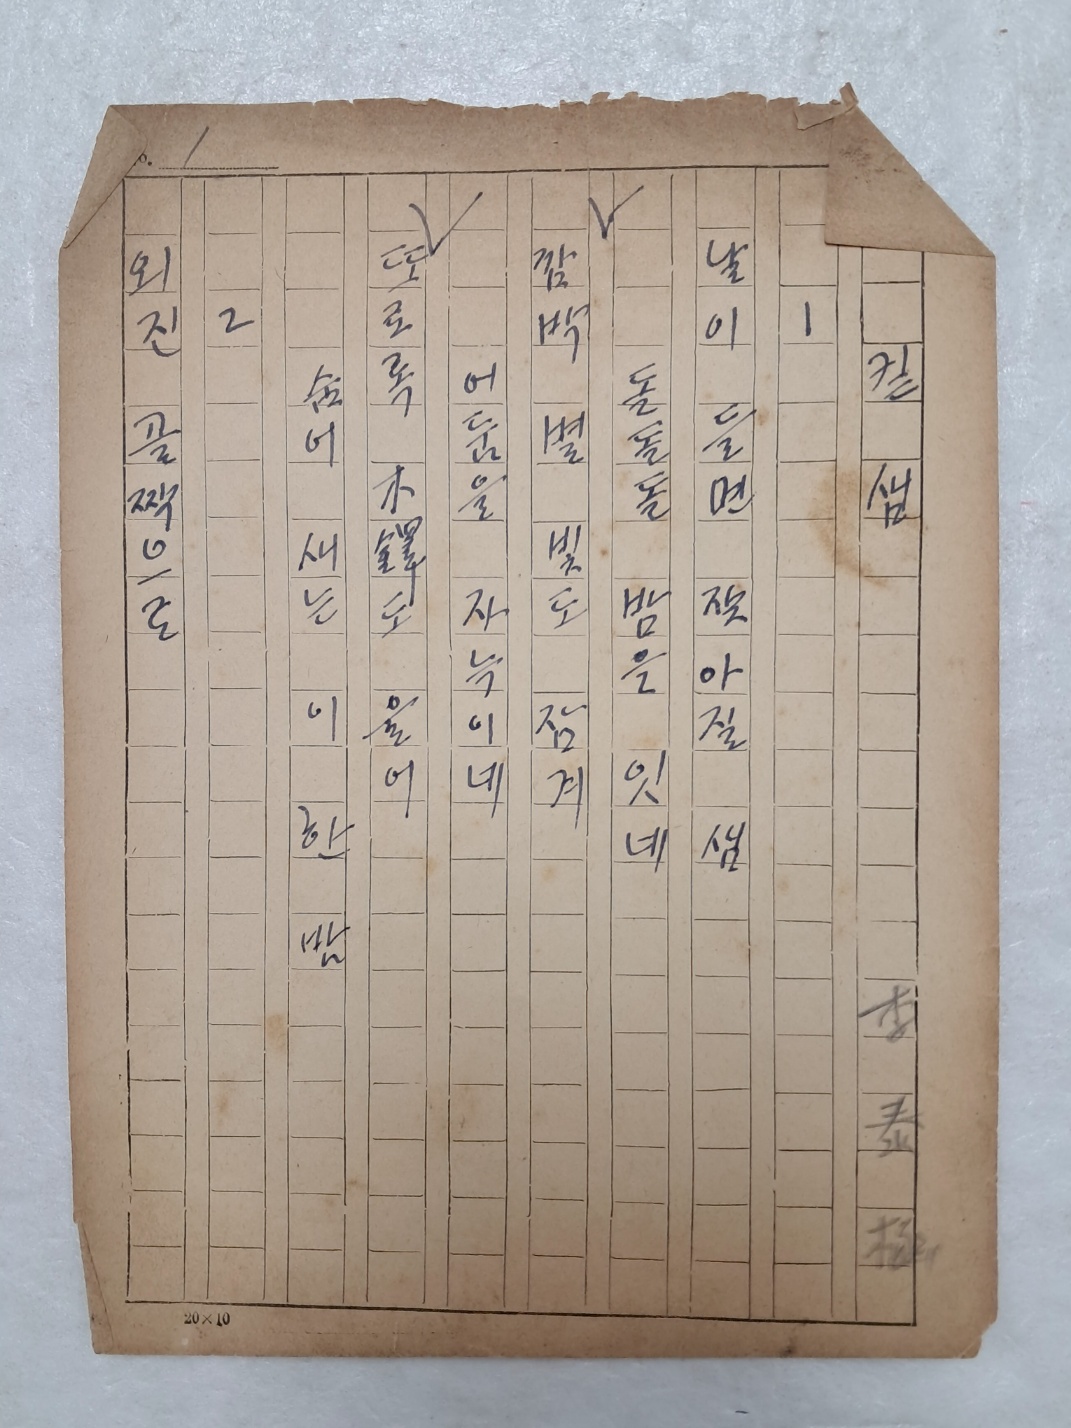 No. 1
샘
李泰極
1
날이 들면 잦아질 샘
돌돌돌 밤을 잇네
깜벅 별 빛도 잠겨
어둠을 자늑이네
또로록 木鐸도 울어
숨어 새는 이 한 밤
2
외진 골짝으로
20×10